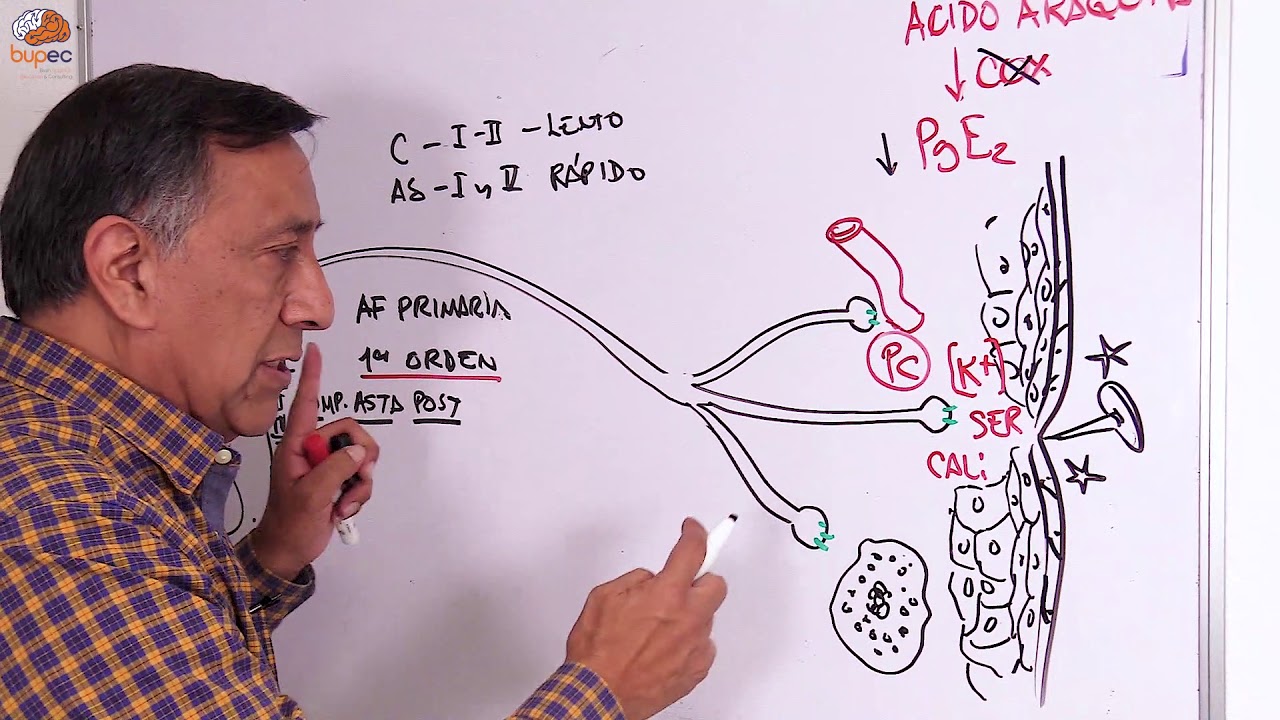 bupec
ÁCIDO
COX
↓ PgE₂
C – I-II – LENTO
Aδ – I y V RÁPIDO
AF PRIMARIA
1ᵃ ORDEN
ASTA POST
PC
[K+]
SER
CALi